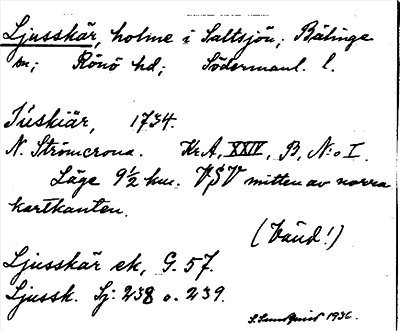 Ljusskär, holme i Saltsjön; Bälinge
sn; Rönö hd; Södermanl. l.
Júskiär, 1734.
N. Strömcrona. Kr.A, XXIV, B, N:o I.
Läge 9½ km. VSV mitten av norra
kartkanten.
(Vänd!)
Ljusskär ek, G. 57.
Ljussk. Sj: 238 o. 239.
1936.